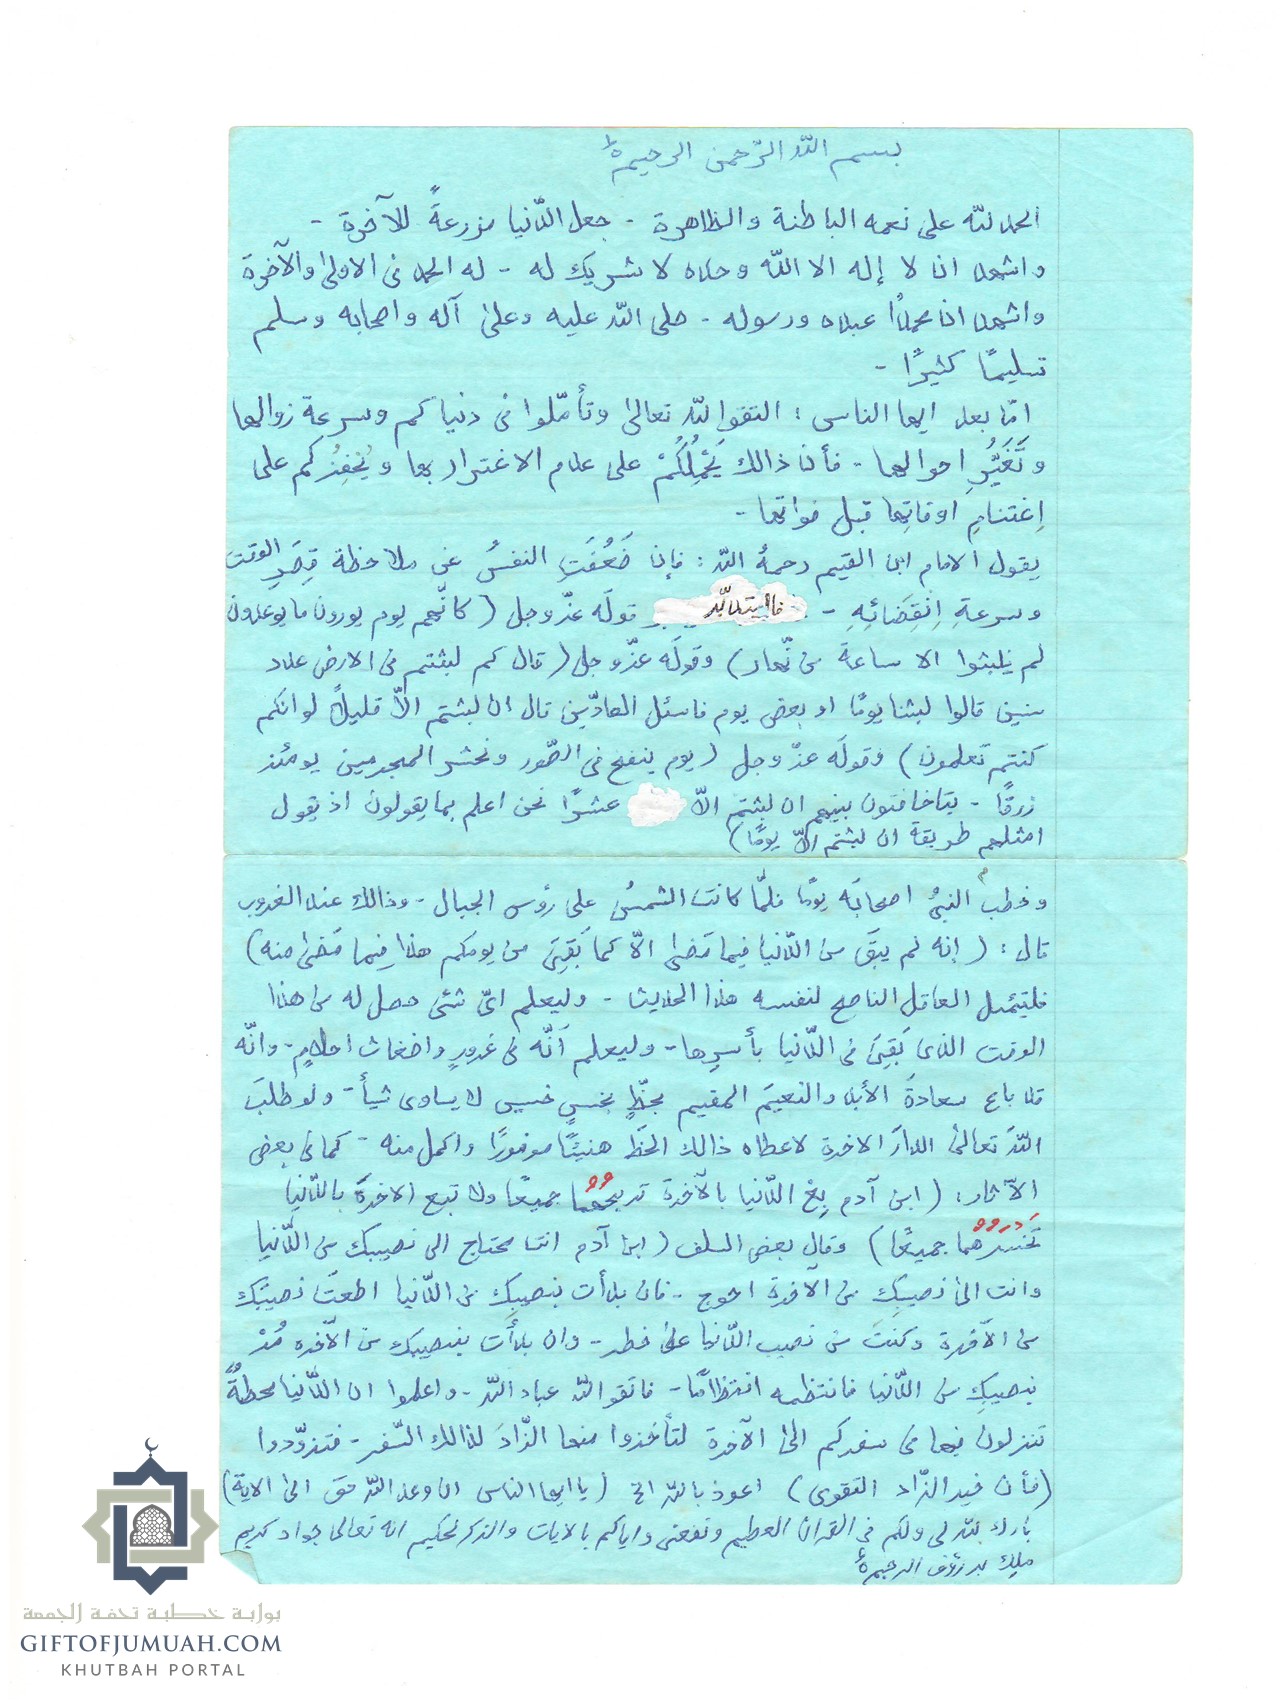 بسم اللّٰه الرّحمن الرحيم ٥
الحمد للّه على نعمه الباطنة والظاهرة - جعل الدّنيا مزرعةً للآخرة -
واشهد ان لا إله الا اللّه وحده لا شريك له - له الحمد فى الاولىٰ والآخرة
واشهد ان محمدًا عبده ورسوله - صلى اللّه عليه وعلىٰ آله واصحابه وسلم
تسليمًا كثيرًا -
امّا بعد ايها الناس : اتقوا اللّه تعالىٰ وتأمّلوا فى دنياكم وسرعة زوالها
وتَغَيُّرِ احوالها - فأن ذالك يَحْمِلُكُمْ على عدم الاغترار بها ويُحْفِزُكم على
إغتنامِ اوقاتِها قبل فواتها -
يقول الامام ابن القيم رحمهُ اللّه : فإن ضَعُفَتِ النفسُ عن ملاحظة قِصَرِ الوقت
وسرعةِ إنقِضَائِهِ - فاليتدبّر قولَه عزّ وجل ( كانّهم يوم يرون ما يوعدون
لم يلبثوا الا ساعة من نّهار ) وقولَه عزّ وجل ( قال كم لبثتم فى الارض عدد
سنين قالوا لبثنا يومًا او بعض يوم فاسئل العادّين قال ان لبثتم الاّ قليلاً لو انكم
كنتم تعلمون ) وقولَه عزّ وجل ( يوم ينفخ فى الصّور ونحشر المجرمين يومئذ
زرقًا - يتاخافتون بينهم ان لبثتم الاّ عشرًا نحن اعلم بما يقولون اذ يقول
امثلهم طريقة ان لبثتم الاّ يومًا )
وخطب النبىُ اصحابَه يومًا فلمّا كانت الشمسُ على رؤس الجبال - وذالك عند الغروب
قال : ( إنه لم يبقَ من الدّنيا فيما مَضىٰ الاّ كما بَقِىَ من يومكم هذا فِيما مَضىٰ منه )
فليتئمل العاقل الناصح لنفسه هذا الحديث - وليعلم اىّ شئ حصل له من هذا
الوقت الذى بَقِىَ فى الدّنيا بأسرِها - وليعلم اَنّه فى غرورٍ واضغاث احلامٍ - وانّه
قد باع سعادةَ الأبد والنعيمَ المقيم بحَظٍّ بخسٍ خسيس لا يساوى شيأً - ولو طلبَ
اللّهَ تعالىٰ الدارَ الاخرة لاعطاه ذالك الحَظَ هنيئًا موفورًا واكمل منه - كما فى بعض
الآثار : ( ابن آدم بِعْ الدّنيا بالآخرة تربحْهُما جميعًا ولا تبع الاخرةَ بالدّنيا
تَخْسَرْهُما جميعًا ) وقال بعض السلف ( ابن آدم انت محتاج الى نصيبك من الدّنيا
وانت الىٰ نصيبِك من الآخرة احوج - فان بدأت بنصيبِك من الدّنيا اضعتَ نصيبَك
من الآخرة وكنتَ من نصيب الدّنيا علىٰ خطر - وان بدأت بنصيبك من الآخره مُرْ
بنصيبِك من الدّنيا فانتظمه انتظامًا - فاتقو اللّه عباد اللّه - واعلموا ان الدّنيا محطةٌ
تنزلون فيها فى سفركم الىٰ الآخرة لتأخذوا منها الزّادَ لذالك السّفر - فتزوّدوا
( فأن خير الزّاد التقوى ) اعوذ باللّه الخ ( يا ايها الناس ان وعد اللّه حق الىٰ الاية )
بارك للّه لى ولكم فى القران العظيم ونفعنى واياكم بالايات والذكر لحكيم انه تعالىٰ جواد كريم
ملِك بر رؤف الرحيم ٥
بوابة خطبة تحفة الجمعة
GIFTOFJUMUAH.COM
KHUTBAH PORTAL